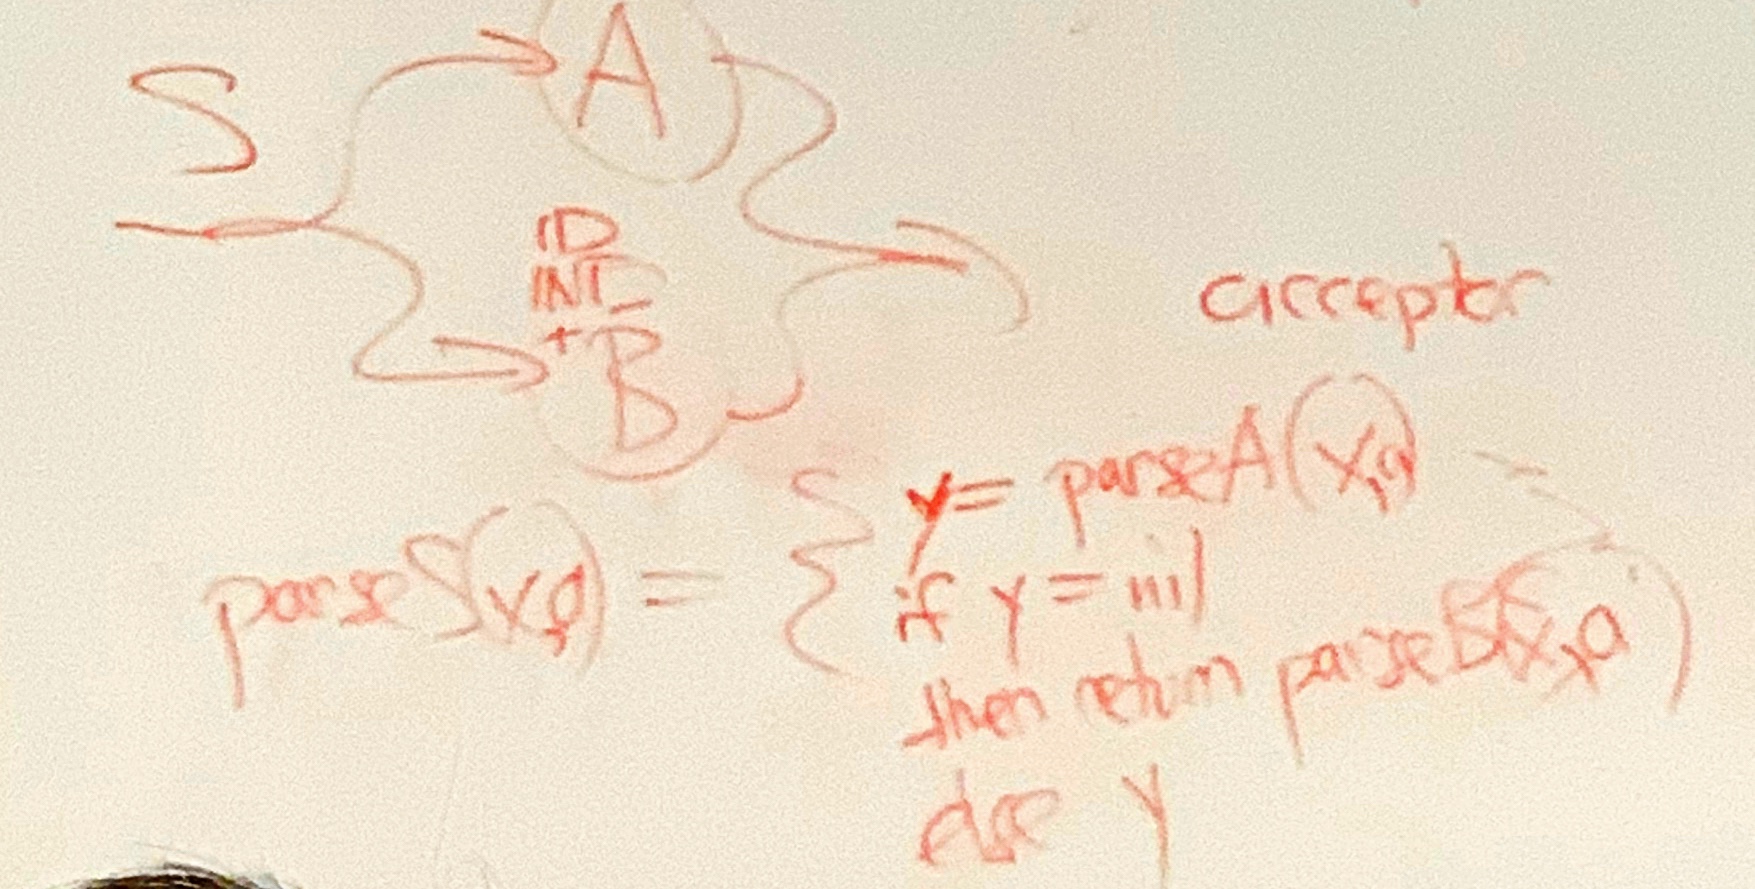 S
A
ID
INT
+
B
acceptor
y = parseA(x,a)
parseS(x,a) = {
if y = nil
then return parseB(x,a)
else y